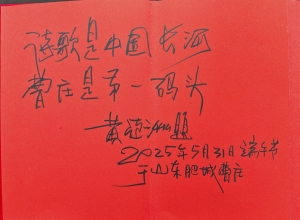 诗歌是中国长河
曹庄是第一码头
黄 题
2025年5月31日端午节
于山东肥城曹庄